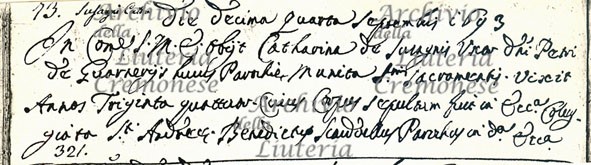 73. Susagni Catta Die decima quarta Septembris 1793
In Com.e S. M. E. obijt Catharina de Susagnis Uxor D.ni Petri
de Guarnerijs huius Parochie, Munita S.mi Sacramenti. Vixit
Annos Triginta quatuor Cuius Corpus sepultum fuit in Ecc.a Colle-
giata S.ti Andree. Benedictus Parochus in d.a Ecc.a
321.
Archivio della Liuteria Cremonese